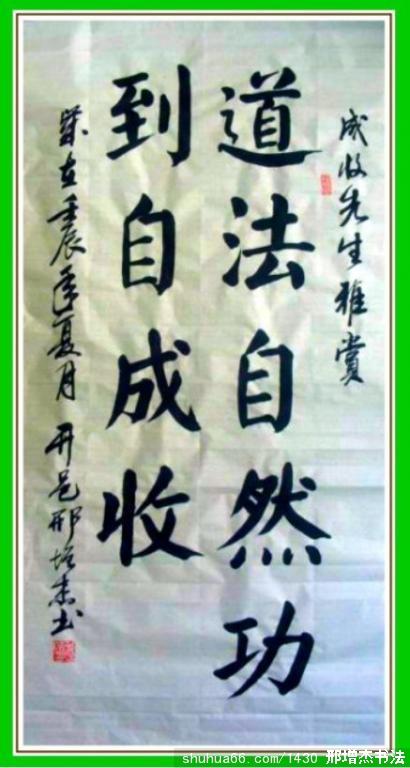 成收先生雅赏
道法自然功
到自成收
岁在壬辰年夏月 开邑邢增杰书
shuhua66.com/1430 邢增杰书法